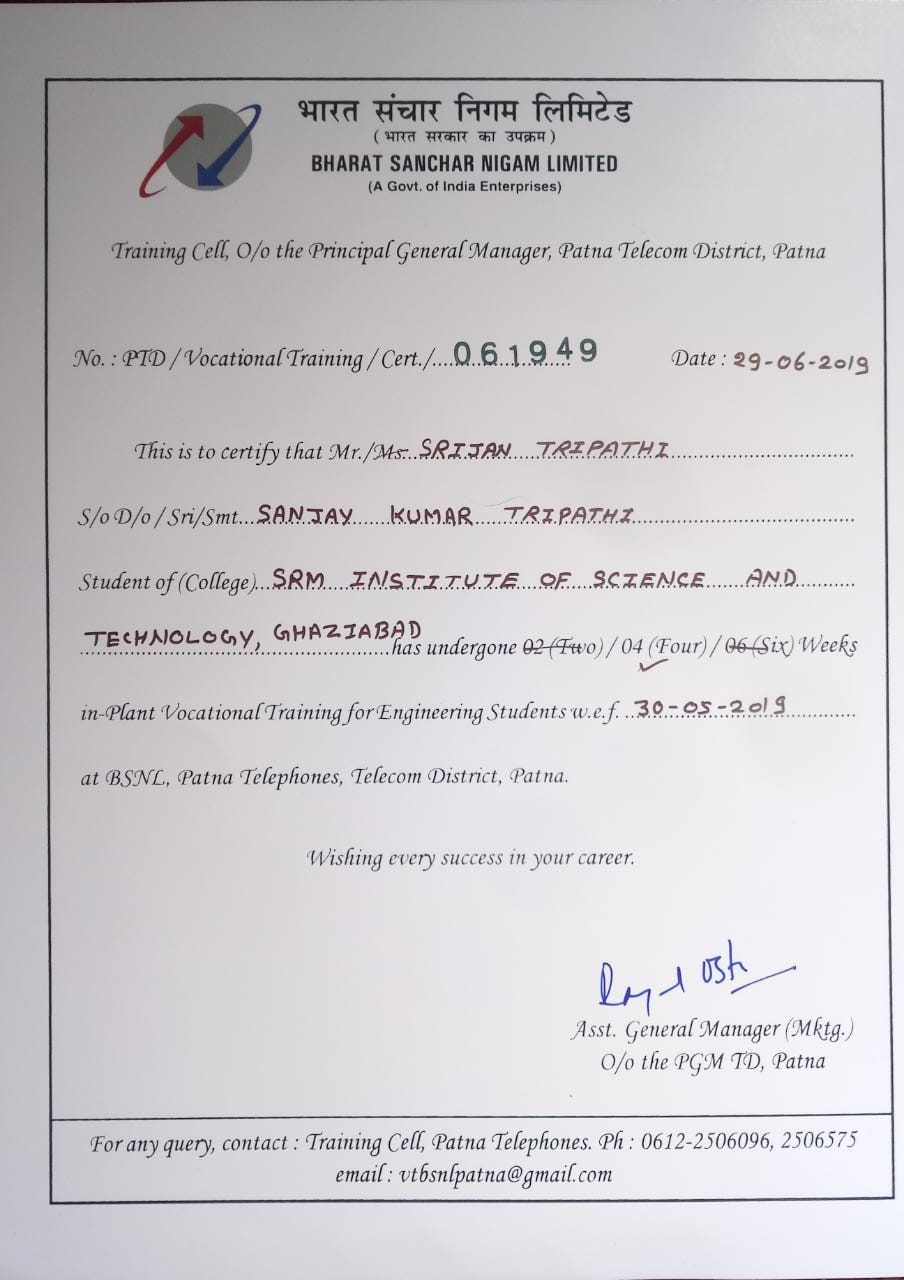 भारत संचार निगम लिमिटेड
( भारत सरकार का उपक्रम )
BHARAT SANCHAR NIGAM LIMITED
(A Govt. of India Enterprises)
Training Cell, O/o the Principal General Manager, Patna Telecom District, Patna
No. : PTD / Vocational Training / Cert./....061949 Date : 29-06-2019
This is to certify that Mr./Ms...SRIJAN TRIPATHI
S/o D/o / Sri/Smt...SANJAY KUMAR TRIPATHI
Student of (College)..SRM INSTITUTE OF SCIENCE AND
TECHNOLOGY, GHAZIABAD has undergone 02 (Two) / 04 (Four) / 06 (Six) Weeks
in-Plant Vocational Training for Engineering Students w.e.f. ..30-05-2019
at BSNL, Patna Telephones, Telecom District, Patna.
Wishing every success in your career.
Asst. General Manager (Mktg.)
O/o the PGM TD, Patna
For any query, contact : Training Cell, Patna Telephones. Ph : 0612-2506096, 2506575
email : vtbsnlpatna@gmail.com